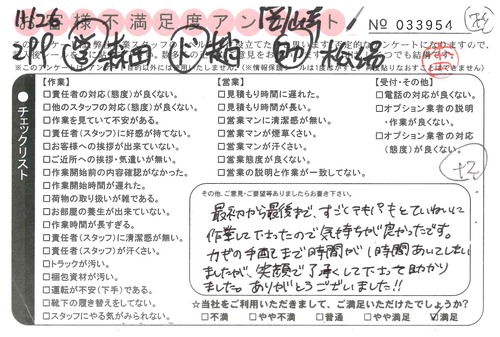 お客様不満足度アンケート
No 033954
【作業】
□責任者の対応(態度)が良くない。
□他のスタッフの対応(態度)が良くない。
□作業を見ていて不安がある。
□責任者(スタッフ)に好感が持てない。
□お客様への挨拶が出来ていない。
□ご近所への挨拶・気遣いが無い。
□作業開始前の内容確認がなかった。
□作業開始時間が遅れた。
□荷物の取り扱いが雑である。
□お部屋の養生が出来ていない。
□作業時間が長すぎる。
□責任者(スタッフ)に清潔感が無い。
□責任者(スタッフ)が汗くさい。
□トラックが汚い。
□梱包資材が汚い。
□運転が不安(下手)である。
□靴下の履き替えをしてない。
□スタッフにやる気がみられない。
【営業】
□見積もり時間に遅れた。
□見積もり時間が長い。
□営業マンに清潔感が無い。
□営業マンが煙草くさい。
□営業マンが汗くさい。
□営業態度が良くない。
□営業の説明と作業が一致してない。
【受付・その他】
□電話の対応が良くない。
□オプション業者の説明
・作業が良くない。
□オプション業者の対応
(態度)が良くない。
●チェックリスト
その他、ご意見・ご要望等ありましたらお書き下さい。
最初から最後まで、すごくテキパキとていねいに
作業して下さったので気持ちが良かったです。
カギの手配まで時間が1時間あいてしまい
ましたが、笑顔で了承して下さって助かり
ました。ありがとうございました!!
☆当社をご利用いただきまして、ご満足いただけたでしょうか?
□不満 □やや不満 □普通 □やや満足 ☑満足